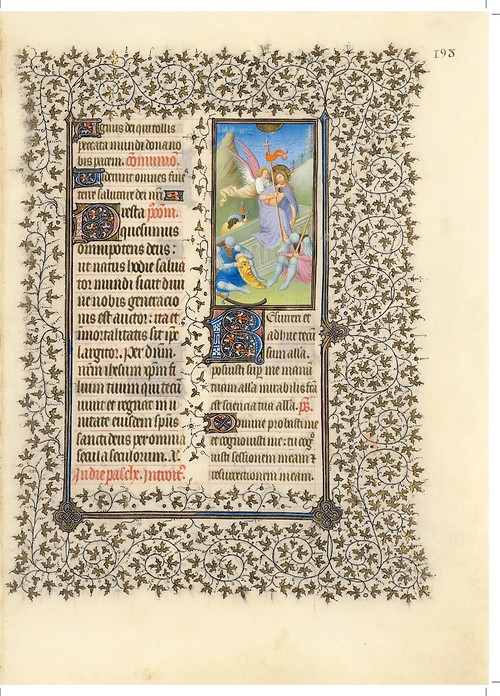 198
Agnus dei qui tollis
peccata mundi dona no
bis pacem. cōmunio.
Viderunt omnes fines
terre salutare dei nr̄i
Presta p̄com.
quesumus
omnipotens deus:
ut natus hodie salua
tor mundi sicut diui
ne nobis generacio
nis est auctor: ita et
imortalitatis sit ip̄e
largitor. Per dn̄m
nr̄um ihesum xp̄m fi
lium tuum qui tecū
uiuit et regnat in u
nitate eiusdem sp̄us
sancti deus per omnia
secula seculorum. A.
In die pasche. Introitꝰ.
Resurrexi et
adhuc tecū
sum alla.
posuisti sup̄ me manū
tuam alla mirabilis fc̄a
est sciencia tua alla. p̄s.
Domine probasti me
et cognouisti me: tu cogº
uisti sessionem meam ⁊
resurrectionem meam.